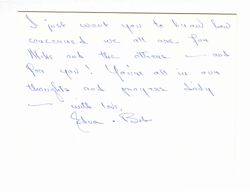 I just want you to know how
concerned we all are for
Mike and the others — and
for you! You're all in our
thoughts and prayers daily
— with love,
Edna + Bob